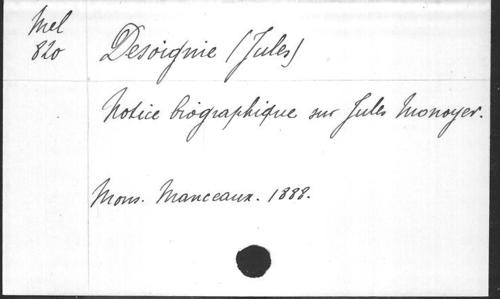 Mel
820
Desoignie (Jules)
Notice biographique sur Jules Monoyer.
Mons. Manceaux. 1888.